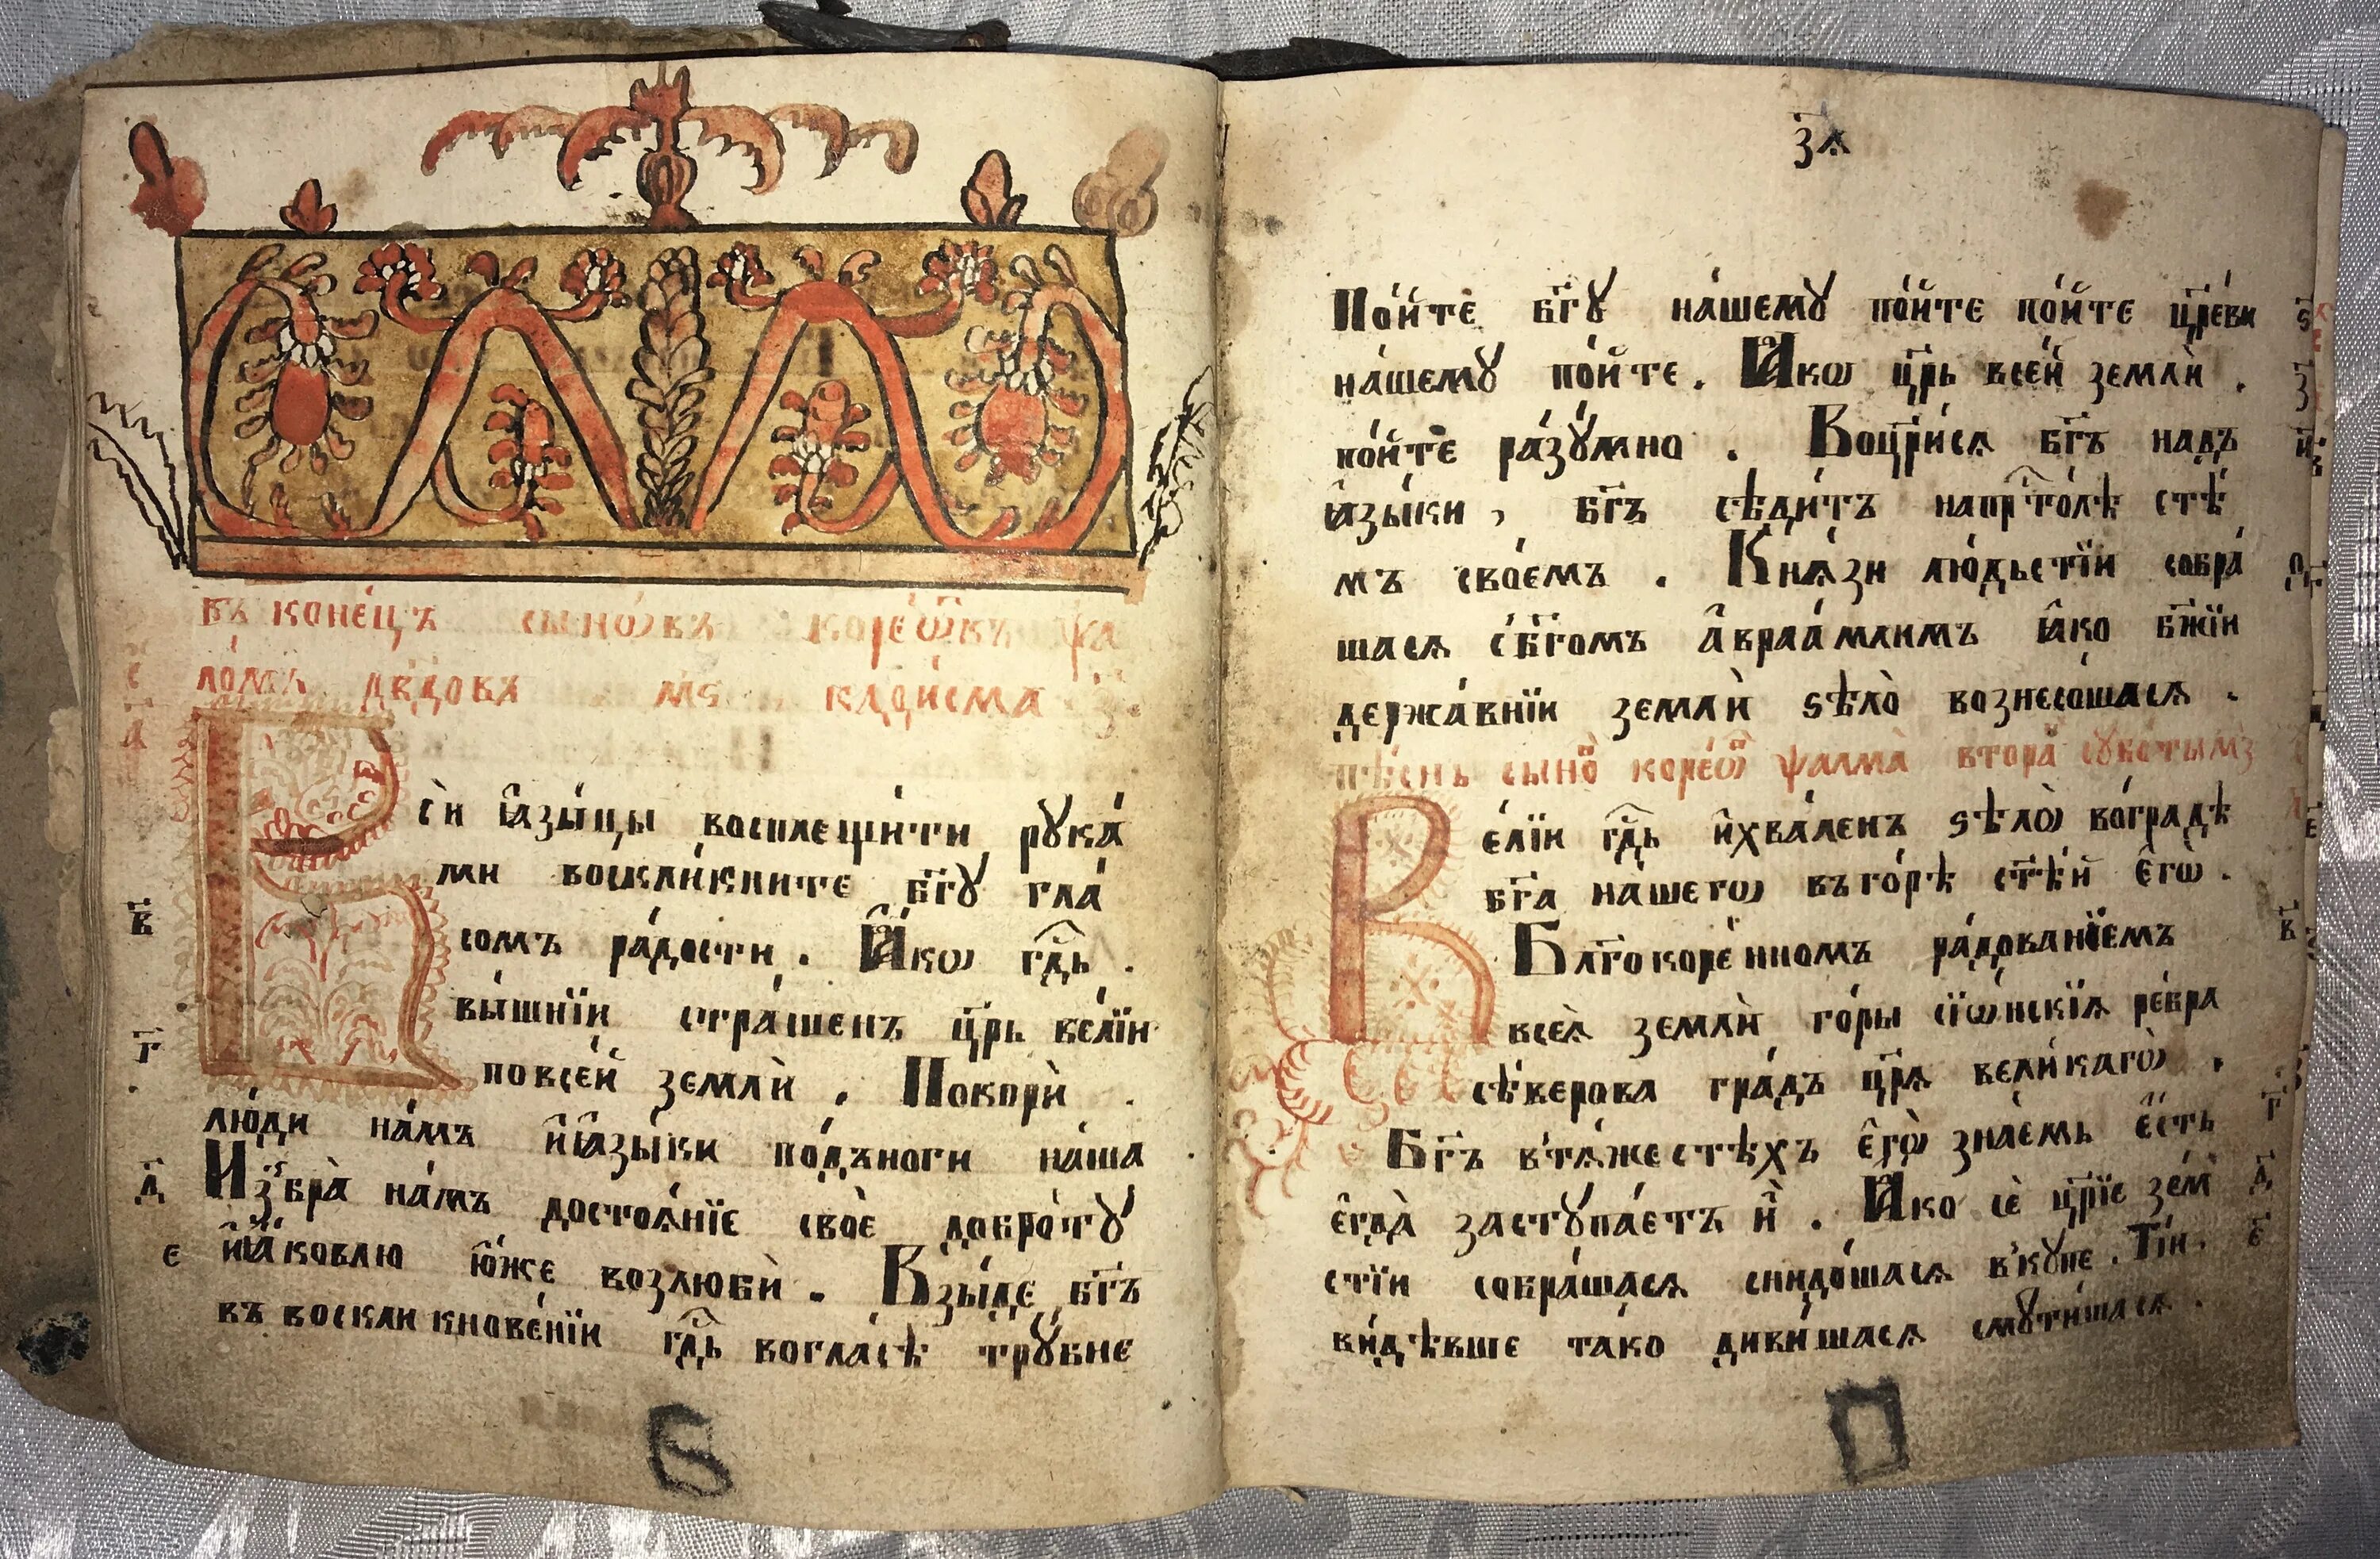 въ конецъ сыновъ корѐѡвъ ѱа
ломъ дв҃дова м҃ѕ каѳисма з҃
В
сѝ ꙗ҆зы́цы восплещи́ти рꙋка́
ми воскли́кните бг҃ꙋ гла́
сомъ ра́дости . Ꙗ҆́кѡ гд҇ь .
вы́шнїи стра́шенъ цр҃ь ве́лїи
повсе́й землѝ . Покорѝ .
лю́ди на́мъ и҆ꙗ҆зы́ки по́дъноги на́ша .
И҆збра̀ на́мъ достоѧ́нїе своѐ добро́тꙋ
и҆ꙗ҆́ковлю ю҆́же возлюбѝ . Взы́де бг҃ъ
въ воскликнове́нїи гд҇ь вогла́сѣ трꙋ́бне
в҃
г҃
д҃
є
ѕ
з҃д
По́йте бг҃ꙋ на́шемꙋ по́йте по́йте цр҃е́ви
на́шемꙋ по́йте . Ꙗ҆́кѡ цр҃ь все́й землѝ .
по́йте ра́зꙋмно . Воцр҃и́сѧ бг҃ъ надъ
ꙗ҆зы́ки , бг҃ъ сѣди́тъ напрⷭ҇то́лѣ ст҃ѣ́
мъ свое́мъ . Кнѧ́зи лю́дьстїи собра́
шасѧ сбг҃омъ а҆враа́млимъ ꙗ҆́ко бж҃їи
держа́внїи землѝ ѕѣлѡ̀ вознесо́шасѧ .
пѣ́снь сыно̀ коре́ѡ ѱалма̀ втора̀
В
е́лїи гд҇ь и҆хва́ленъ ѕѣлѡ̀ во́градѣ
бг҃а на́шегѡ въго́рѣ ст҃ѣ́й є҆гѡ̀ .
Блг҃окоре́нномъ ра́дованїемъ
всеѧ̀ землѝ го́ры сїѡ́нскїѧ ре́бра
сѣ́верова гра́дъ цр҃ѧ вели́кагѡ .
Бг҃ъ втѧ́жестѣхъ є҆гѡ̀ зна́емь є҆́сть
є҆гда̀ застꙋпа́етъ и҆̀ . Ꙗ҆́ко сѐ цр҃їе зем
стїи собра́шасѧ снидо́шасѧ в́кꙋпе . Ті́и
ви́дѣвше та́ко диви́шасѧ смꙋти́шасѧ .
ѕ҃
з҃
в҃
г҃
д҃